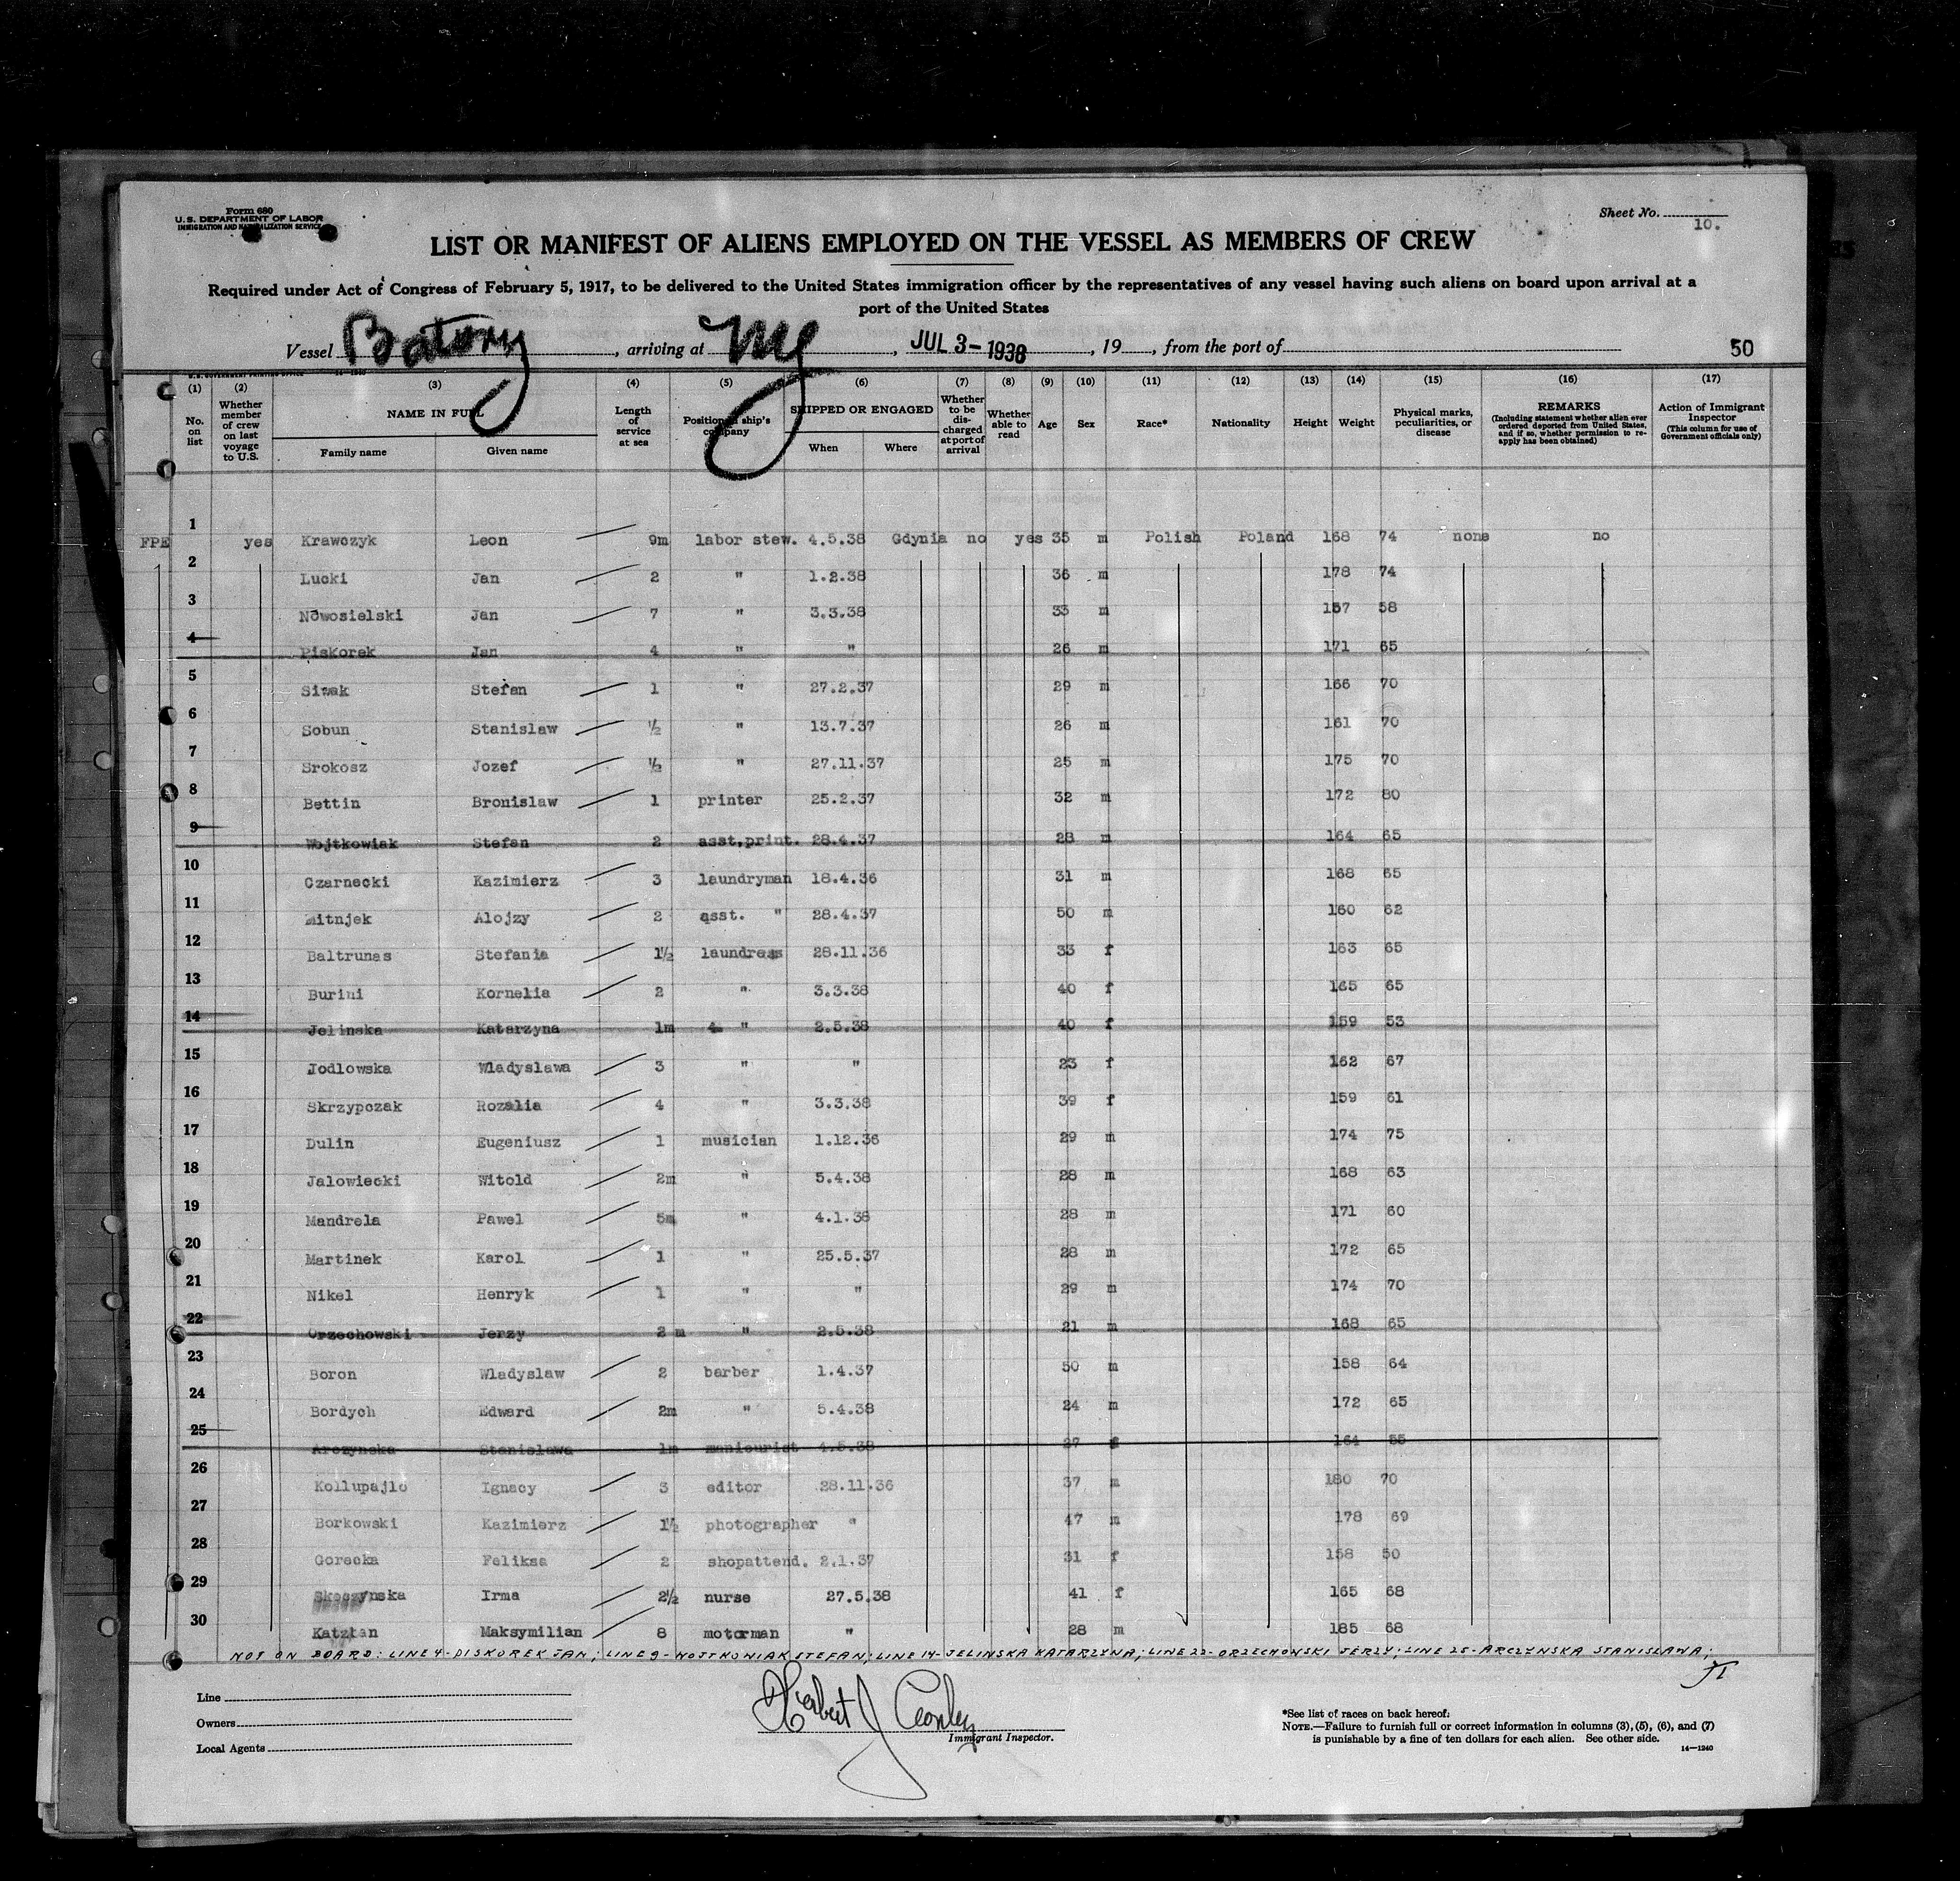 Form 680
U. S. DEPARTMENT OF LABOR
IMMIGRATION AND NATURALIZATION SERVICE
Sheet No.
10.
LIST OR MANIFEST OF ALIENS EMPLOYED ON THE VESSEL AS MEMBERS OF CREW
Required under Act of Congress of February 5, 1917, to be delivered to the United States immigration officer by the representatives of any vessel having such aliens on board upon arrival at a
port of the United States
Vessel Batory, arriving at NY, JUL 3-1938, 19, from the port of 50
U.S. GOVERNMENT PRINTING OFFICE 14-1240
(1) (2) (3) (4) (5) (6) (7) (8) (9) (10) (11) (12) (13) (14) (15) (16) (17)
No. on list Whether member of crew on last voyage to U.S. NAME IN FULL Family name Given name Length of service at sea Position in ship's company SHIPPED OR ENGAGED When Where Whether to be discharged at port of arrival Whether able to read Age Sex Race* Nationality Height Weight Physical marks, peculiarities, or disease REMARKS (Including statement whether alien ever ordered deported from United States, and if so, whether permission to reapply has been obtained) Action of Immigrant Inspector (This column for use of Government officials only)
1 FPE yes Krawczyk Leon 9m labor stew. 4.5.38 Gdynia no yes 35 m Polish Poland 168 74 none no
2 Lucki Jan 2 " 1.2.38 36 m 178 74
3 Nowosielski Jan 7 " 3.3.38 33 m 157 58
4 Piskorek Jan 4 " " 26 m 171 65
5 Siwak Stefan 1 " 27.2.37 29 m 166 70
6 Sobun Stanislaw ½ " 13.7.37 26 m 161 70
7 Srokosz Jozef ½ " 27.11.37 25 m 175 70
8 Bettin Bronislaw 1 printer 25.2.37 32 m 172 80
9 Wojtkowiak Stefan 2 asst.print. 28.4.37 28 m 164 65
10 Czarnecki Kazimierz 3 laundryman 18.4.36 31 m 168 65
11 Mitnjek Alojzy 2 asst. " 28.4.37 50 m 160 62
12 Baltrunas Stefania 1½ laundress 28.11.36 33 f 163 65
13 Burini Kornelia 2 " 3.3.38 40 f 165 65
14 Jelinska Katarzyna 1m " 2.5.38 40 f 159 53
15 Jodlowska Wladyslawa 3 " " 23 f 162 67
16 Skrzypczak Rozalia 4 " 3.3.38 39 f 159 61
17 Dulin Eugeniusz 1 musician 1.12.36 29 m 174 75
18 Jalowiecki Witold 2m " 5.4.38 28 m 168 63
19 Mandrela Pawel 5m " 4.1.38 28 m 171 60
20 Martinek Karol 1 " 25.5.37 28 m 172 65
21 Nikel Henryk 1 " " 29 m 174 70
22 Orzechowski Jerzy 2 m " 2.5.38 21 m 168 65
23 Boron Wladyslaw 2 barber 1.4.37 50 m 158 64
24 Bordych Edward 2m " 5.4.38 24 m 172 65
25 Arczynska Stanislawa 1m manicurist 4.5.38 27 f 164 55
26 Kollupajlo Ignacy 3 editor 28.11.36 37 m 180 70
27 Borkowski Kazimierz 1½ photographer " 47 m 178 69
28 Gorecka Feliksa 2 shopattend. 2.1.37 31 f 158 50
29 Skoczynska Irma 2½ nurse 27.5.38 41 f 165 68
30 Katztan Maksymilian 8 motorman " 28 m 185 68
NOT ON BOARD: LINE 4-DISKOREK JAN; LINE 9-WOJTKOWIAK STEFAN; LINE 14-JELINSKA KATARZYNA; LINE 22-ORZECHOWSKI JERZY; LINE 25-ARCZYNSKA STANISLAWA;
Line
Owners
Local Agents
Herbert J Conley
Immigrant Inspector.
*See list of races on back hereof.
NOTE.—Failure to furnish full or correct information in columns (3), (5), (6), and (7)
is punishable by a fine of ten dollars for each alien. See other side.
14—1240